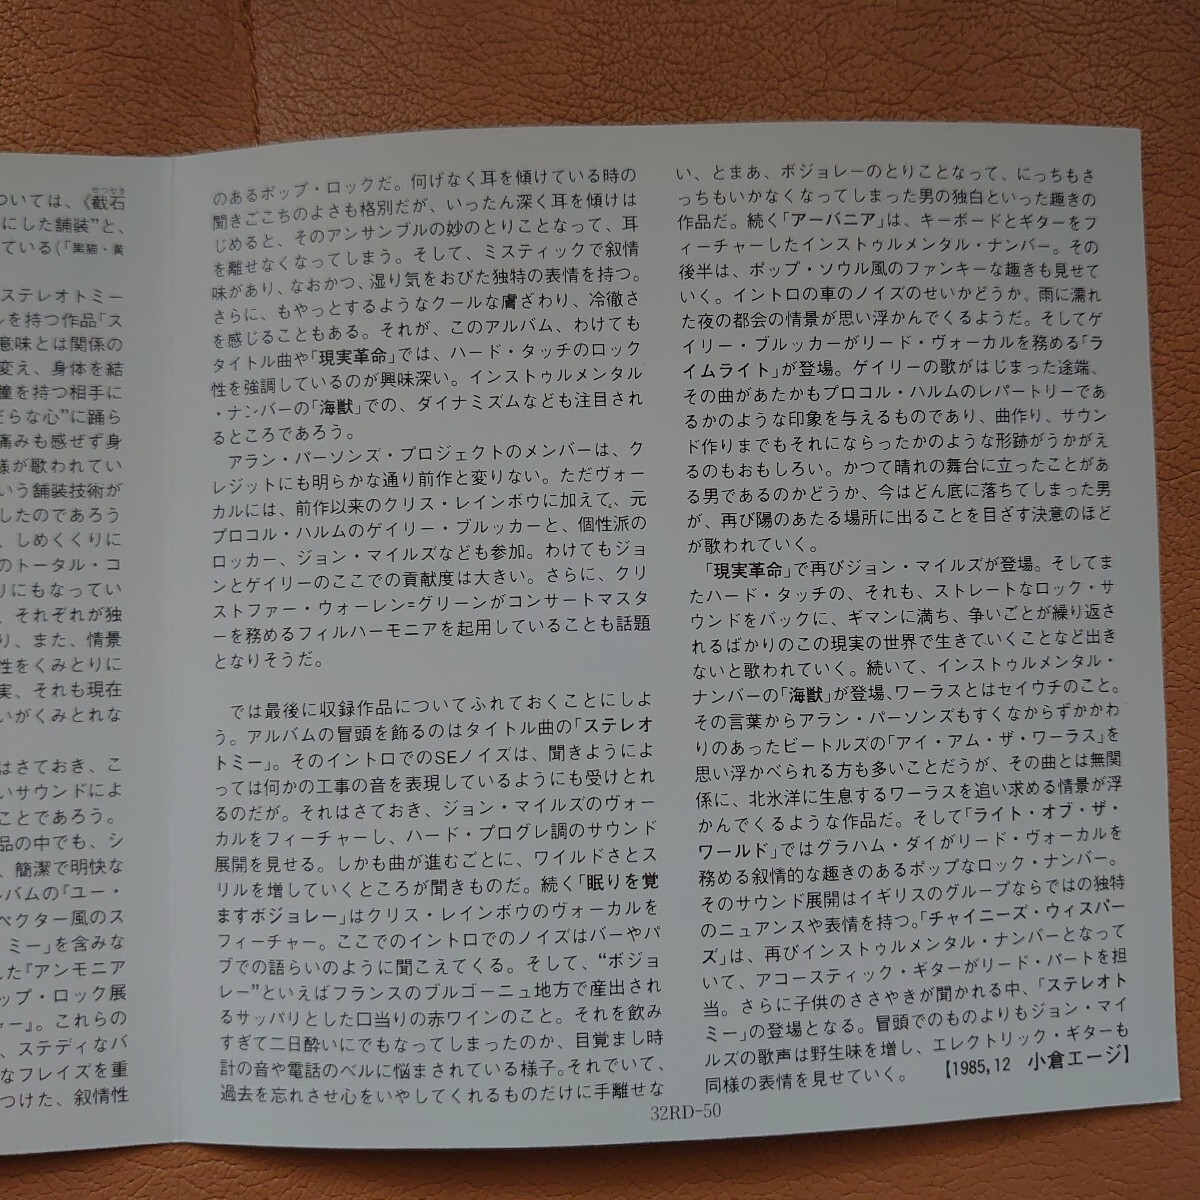 せつせき
ついては、《截石
にした舗装"と、
ている(「黒猫・黄
ステレオトミー
ルを持つ作品「ス
意味とは関係の
変え、身体を結
瞳を持つ相手に
だらな心"に踊ら
痛みも感ぜず身
様が歌われてい
いう舗装技術が
したのであろう
、しめくくりに
のトータル・コ
りにもなってい
、それぞれが独
り、また、情景
性をくみとりに
実、それも現在
いがくみとれな
はさておき、こ
いサウンドによ
ことであろう。
品の中でも、シ
、簡潔で明快な
ルバムの『ユー・
ペクター風のス
ミー」を含みな
した『アンモニア
ップ・ロック展
ャー』。これらの
、ステディなバ
なフレイズを重
つけた、叙情性
のあるポップ・ロックだ。何げなく耳を傾けている時の
聞きごこちのよさも格別だが、いったん深く耳を傾けは
じめると、そのアンサンブルの妙のとりことなって、耳
を離せなくなってしまう。そして、ミスティックで叙情
味があり、なおかつ、湿り気をおびた独特の表情を持つ。
さらに、もやっとするようなクールな膚ざわり、冷徹さ
を感じることもある。それが、このアルバム、わけても
タイトル曲や「現実革命」では、ハード・タッチのロック
性を強調しているのが興味深い。インストゥルメンタル
・ナンバーの「海獣」での、ダイナミズムなども注目され
るところであろう。
アラン・パーソンズ・プロジェクトのメンバーは、ク
レジットにも明らかな通り前作と変りない。ただヴォー
カルには、前作以来のクリス・レインボウに加えて、元
プロコル・ハルムのゲイリー・ブルッカーと、個性派の
ロッカー、ジョン・マイルズなども参加。わけてもジョ
ンとゲイリーのここでの貢献度は大きい。さらに、クリ
ストファー・ウォーレン=グリーンがコンサートマスタ
ーを務めるフィルハーモニアを起用していることも話題
となりそうだ。
では最後に収録作品についてふれておくことにしよ
う。アルバムの冒頭を飾るのはタイトル曲の「ステレオ
トミー」。そのイントロでのSEノイズは、聞きようによ
っては何かの工事の音を表現しているようにも受けとれ
るのだが。それはさておき、ジョン・マイルズのヴォー
カルをフィーチャーし、ハード・プログレ調のサウンド
展開を見せる。しかも曲が進むごとに、ワイルドさとス
リルを増していくところが聞きものだ。続く「眠りを覚
ますボジョレー」はクリス・レインボウのヴォーカルを
フィーチャー。ここでのイントロでのノイズはバーやパ
ブでの語らいのように聞こえてくる。そして、“ボジョ
レー”といえばフランスのブルゴーニュ地方で産出され
るサッパリとした口当りの赤ワインのこと。それを飲み
すぎて二日酔いにでもなってしまったのか、目覚まし時
計の音や電話のベルに悩まされている様子。それでいて、
過去を忘れさせ心をいやしてくれるものだけに手離せな
い、とまあ、ボジョレーのとりことなって、にっちもさ
っちもいかなくなってしまった男の独白といった趣きの
作品だ。続く「アーバニア」は、キーボードとギターをフ
ィーチャーしたインストゥルメンタル・ナンバー。その
後半は、ポップ・ソウル風のファンキーな趣きも見せて
いく。イントロの車のノイズのせいかどうか、雨に濡れ
た夜の都会の情景が思い浮かんでくるようだ。そしてゲ
イリー・ブルッカーがリード・ヴォーカルを務める「ラ
イムライト」が登場。ゲイリーの歌がはじまった途端、
その曲があたかもプロコル・ハルムのレパートリーであ
るかのような印象を与えるものであり、曲作り、サウン
ド作りまでもそれにならったかのような形跡がうかがえ
るのもおもしろい。かつて晴れの舞台に立ったことがあ
る男であるのかどうか、今はどん底に落ちてしまった男
が、再び陽のあたる場所に出ることを目ざす決意のほど
が歌われていく。
「現実革命」で再びジョン・マイルズが登場。そしてま
たハード・タッチの、それも、ストレートなロック・サ
ウンドをバックに、ギマンに満ち、争いごとが繰り返さ
れるばかりのこの現実の世界で生きていくことなど出き
ないと歌われていく。続いて、インストゥルメンタル・
ナンバーの「海獣」が登場、ワーラスとはセイウチのこと。
その言葉からアラン・パーソンズもすくなからずかかわ
りのあったビートルズの「アイ・アム・ザ・ワーラス」を
思い浮かべられる方も多いことだうが、その曲とは無関
係に、北氷洋に生息するワーラスを追い求める情景が浮
かんでくるような作品だ。そして「ライト・オブ・ザ・
ワールド」ではグラハム・ダイがリード・ヴォーカルを
務める叙情的な趣きのあるポップなロック・ナンバー。
そのサウンド展開はイギリスのグループならではの独特
のニュアンスや表情を持つ。「チャイニーズ・ウィスパー
ズ」は、再びインストゥルメンタル・ナンバーとなって
いて、アコースティック・ギターがリード・パートを担
当。さらに子供のささやきが聞かれる中、「ステレオト
ミー」の登場となる。冒頭でのものよりもジョン・マイ
ルズの歌声は野生味を増し、エレクトリック・ギターも
同様の表情を見せていく。 【1985,12 小倉エージ】
32RD-50